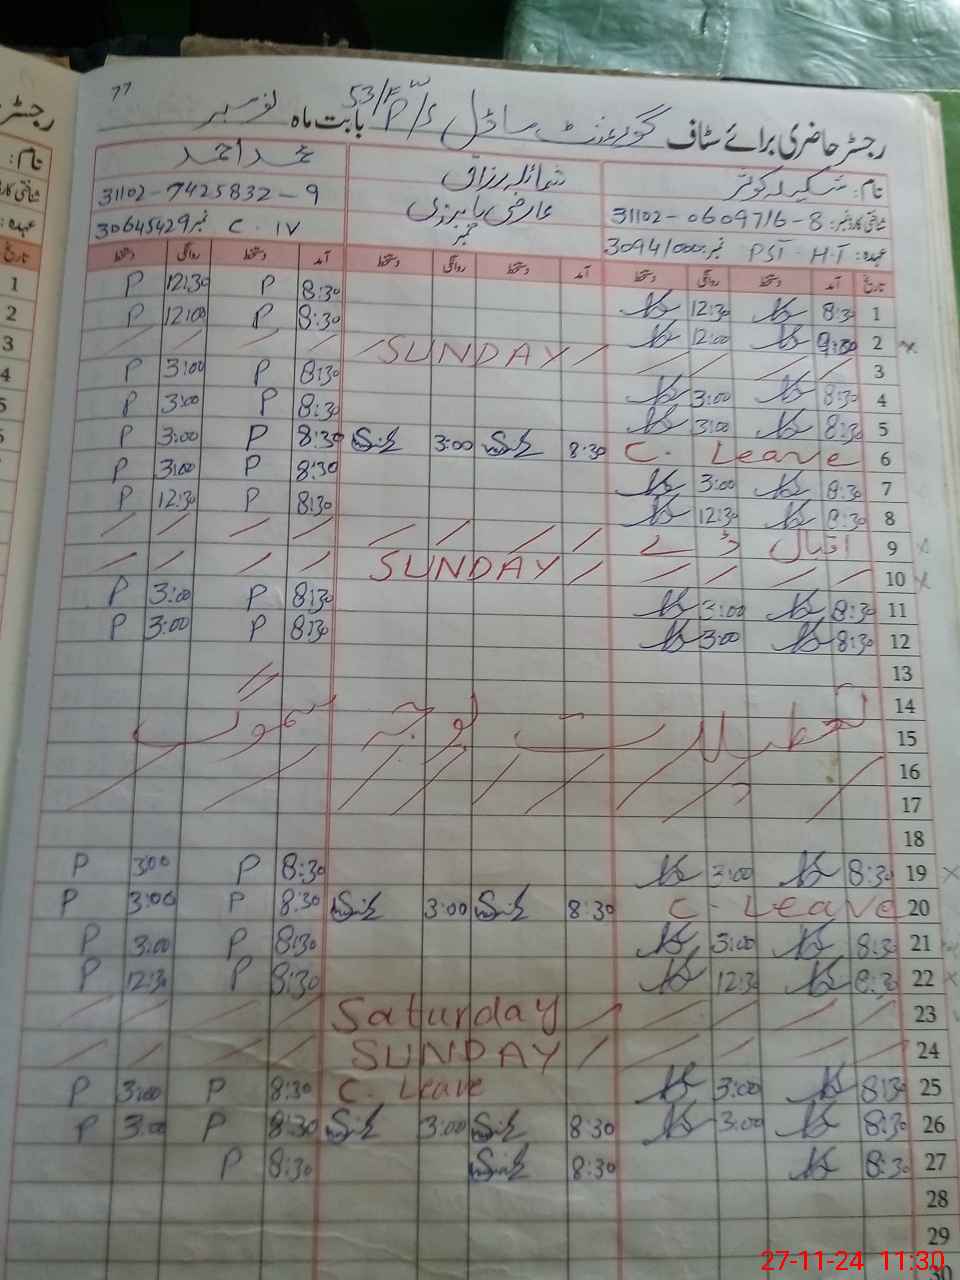 77
رجسٹر حاضری برائے سٹاف گورنمنٹ ماڈل P/S 53/F بابت ماہ نومبر
نام: شکیلہ کوثر شمائلہ رزاق محمد احمد
شناختی کارڈ نمبر: 31102-0609716-8 عارضی 31102-7425832-9
عہدہ: PST-H.T نمبر: 30941000 C.IV نمبر 30645429
تاریخ آمد دستخط روانگی دستخط آمد دستخط روانگی دستخط آمد دستخط روانگی دستخط
1 8:30 12:30 8:30 P 12:30 P
2 9:30 12:00 8:30 P 12:00 P
3 SUNDAY
4 8:30 3:00 8:30 P 3:00 P
5 8:30 3:00 8:30 P 3:00 P
6 C. Leave 8:30 3:00 8:30 P 3:00 P
7 8:30 3:00 8:30 P 3:00 P
8 8:30 12:30 8:30 P 12:30 P
9 اقبال ڈے
10 SUNDAY
11 8:30 3:00 8:30 P 3:00 P
12 8:30 3:00 8:30 P 3:00 P
13
14
15 تعطیلات بوجہ سموگ
16
17
18
19 8:30 3:00 8:30 P 3:00 P
20 C. Leave 8:30 3:00 8:30 P 3:00 P
21 8:30 3:00 8:30 P 3:00 P
22 8:30 12:30 8:30 P 12:30 P
23 Saturday
24 SUNDAY
25 8:30 3:00 C. Leave 8:30 P 3:00 P
26 8:30 3:00 8:30 3:00 8:30 P 3:00 P
27 8:30 8:30 8:30 P
28
29
30
27-11-24 11:30